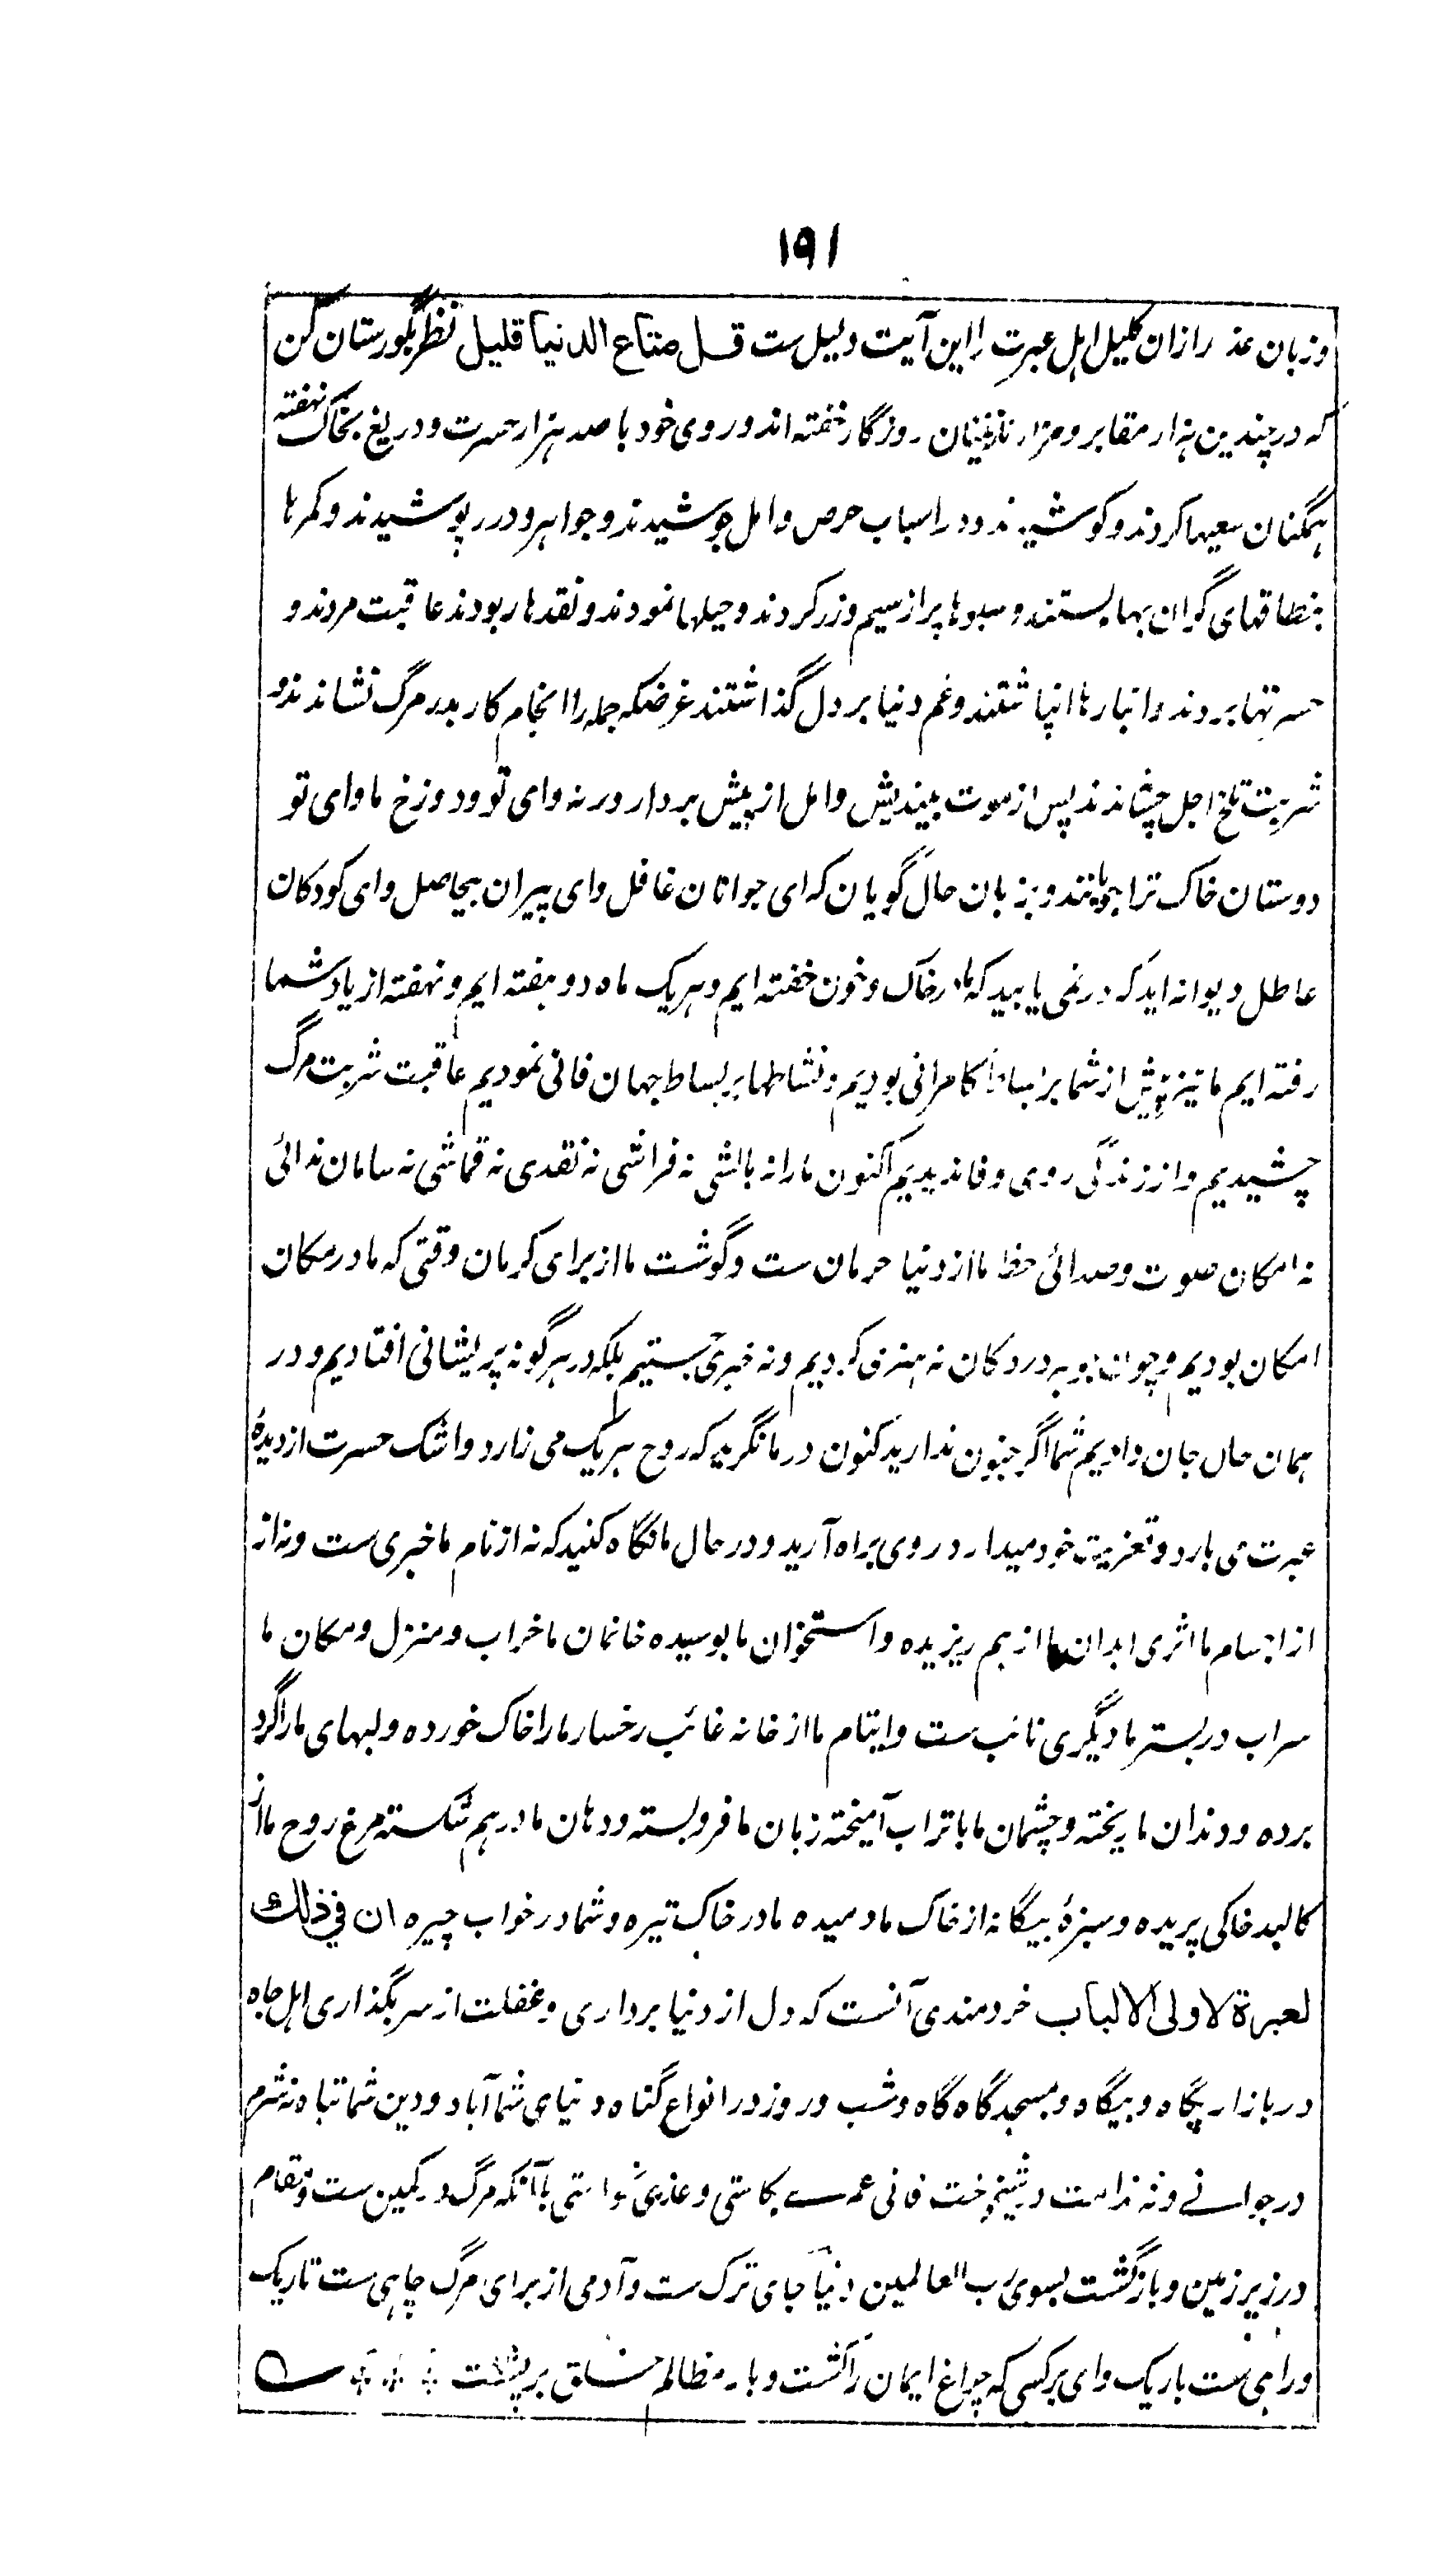 ۱۹۱
وزبان عذر ازان کلیل اهل عبرت را این آیت دلیل ست قل متاع الدنیا قلیل نظر بگورستان کن
که در چندین هزار مقابر و مزار نازنینان روزگار خفته اند و روی خود با صد هزار حسرت و دریغ بخاک نهفته
همگنان سعیها کردند و کوشیدند و در اسباب حرص و امل جوشیدند و جواهر و درر پوشیدند و کمرها
بنطاقهای گران بها بستند و سبوها پر از سیم و زر کردند و حیلها نمودند و نقدها ربودند عاقبت مردند و
حسرتها بردند و انبارها انپاشتند و غم دنیا بر دل گذاشتند غرضکه جمله را انجام کار بدر مرگ نشاندند و
شربت تلخ اجل چشاندند پس از موت بیندیش و امل از پیش بردار ورنه وای تو و دوزخ ماوای تو
دوستان خاک ترا بویند و بزبان حال گویان که ای جوانان غافل و ای پیران بیحاصل و ای کودکان
عاطل دیوانه اید که در نمی یابید که ما در خاک و خون خفته ایم و هر یک ماه دو هفته ایم و نهفته از یاد شما
رفته ایم ما نیز پیش از شما بر بساط کامرانی بودیم و نشاطها بر بساط جهان فانی نمودیم عاقبت شربت مرگ
چشیدیم و از زندگی روی وفا ندیدیم اکنون ما را نه بالشی نه فراشی نه نقدی نه قماشی نه سامان ندائی
نه امکان صوت و صدائی حظ ما از دنیا حرمان ست و گوشت ما از برای کرمان وقتی که ما در مکان
امکان بودیم و چون بدرد کان نه هنری کردیم و نه خبری جستیم بلکه در هر گونه پریشانی افتادیم و در
همان حال جان دادیم شما اگر جنون ندارید کنون در ما نگرید که روح هر یک می زارد و اشک حسرت از دیدهٔ
عبرت می بارد و تعزیت خود میدارد روی براه آرید و در حال ما نگاه کنید که نه از نام ما خبری ست و نه از
از اجسام ما اثری ابدان ما از هم ریزیده و استخوان ما بوسیده خانمان ما خراب و منزل و مکان ما
سراب در بستر ما دیگری نائب ست و ایتام ما از خانه غائب رخسار ما را خاک خورده و لبهای ما را گرد
برده و دندان ما ریخته و چشمان ما با تراب آمیخته زبان ما فرو بسته و دهان ما درهم شکسته مرغ روح ما از
کالبد خاکی پریده و سبزهٔ بیگانه از خاک ما دمیده ما در خاک تیره و شما در خواب چیره ان فی ذلک
لعبرة لاولی الالباب خردمندی آنست که دل از دنیا برداری و غفلت از سر بگذاری اهل جاه
در بازار پگاه و بیگاه و بمسجد گاه گاه و شب و روز در انواع گناه دنیای شما آباد و دین شما تباه نه شرم
در جوانے و نه ندامت در شیخوخت فانی عمرے بکاستی و عذری نخواستی باآنکه مرگ در کمین ست و مقام
در زیر زمین و بازگشت بسوی رب العالمین دنیا جای ترک ست و آدمی از برای مرگ چاهی ست تاریک
و راهی ست باریک وای بر کسی که چراغ ایمان را کشت و بار مظالم خلق بر پشت